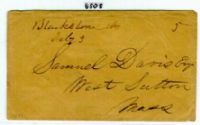 8508
Blackstone Ms 5
July 3
Samuel Davis Esq
West Sutton
Mass